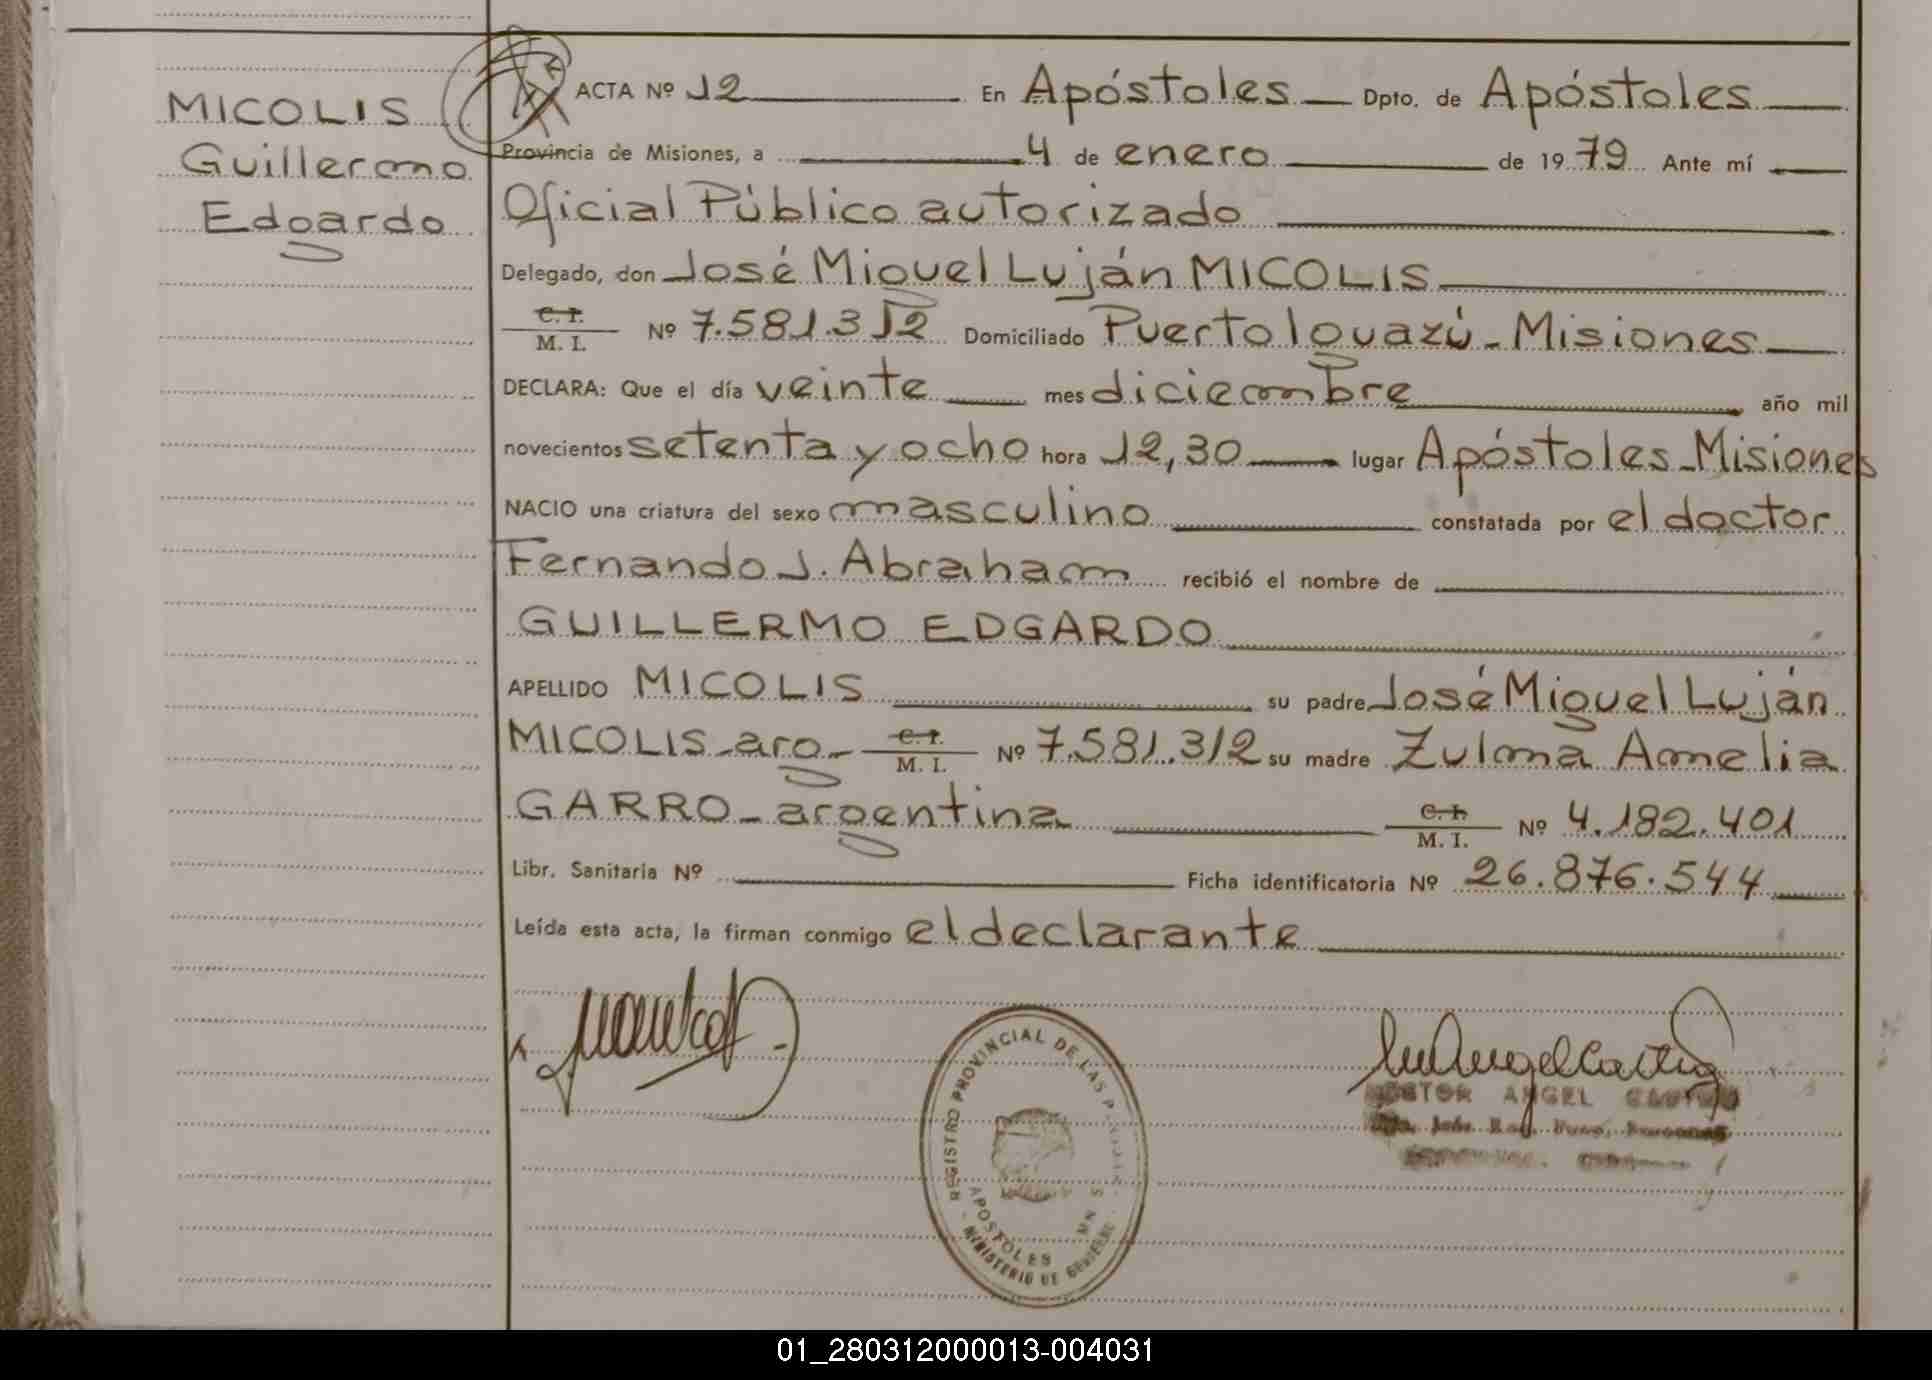 MICOLIS
Guillermo
Edgardo
ACTA Nº 12 En Apóstoles Dpto. de Apóstoles
Provincia de Misiones, a 4 de enero de 1979 Ante mí
Oficial Público autorizado
Delegado, don José Miguel Luján MICOLIS
C. I. / M. I. Nº 7.581.312 Domiciliado Puerto Iguazú - Misiones
DECLARA: Que el día veinte mes diciembre año mil
novecientos setenta y ocho hora 12,30 lugar Apóstoles - Misiones
NACIO una criatura del sexo masculino constatada por el doctor
Fernando J. Abraham recibió el nombre de
GUILLERMO EDGARDO
APELLIDO MICOLIS su padre José Miguel Luján
MICOLIS - arg - C. I. / M. I. Nº 7.581.312 su madre Zulma Amelia
GARRO - argentina C. I. / M. I. Nº 4.182.401
Libr. Sanitaria Nº Ficha identificatoria Nº 26.876.544
Leída esta acta, la firman conmigo el declarante
REGISTRO PROVINCIAL DE LAS
APOSTOLES MNS
MINISTERIO DE GOBIERNO
ANGEL
01_280312000013-004031